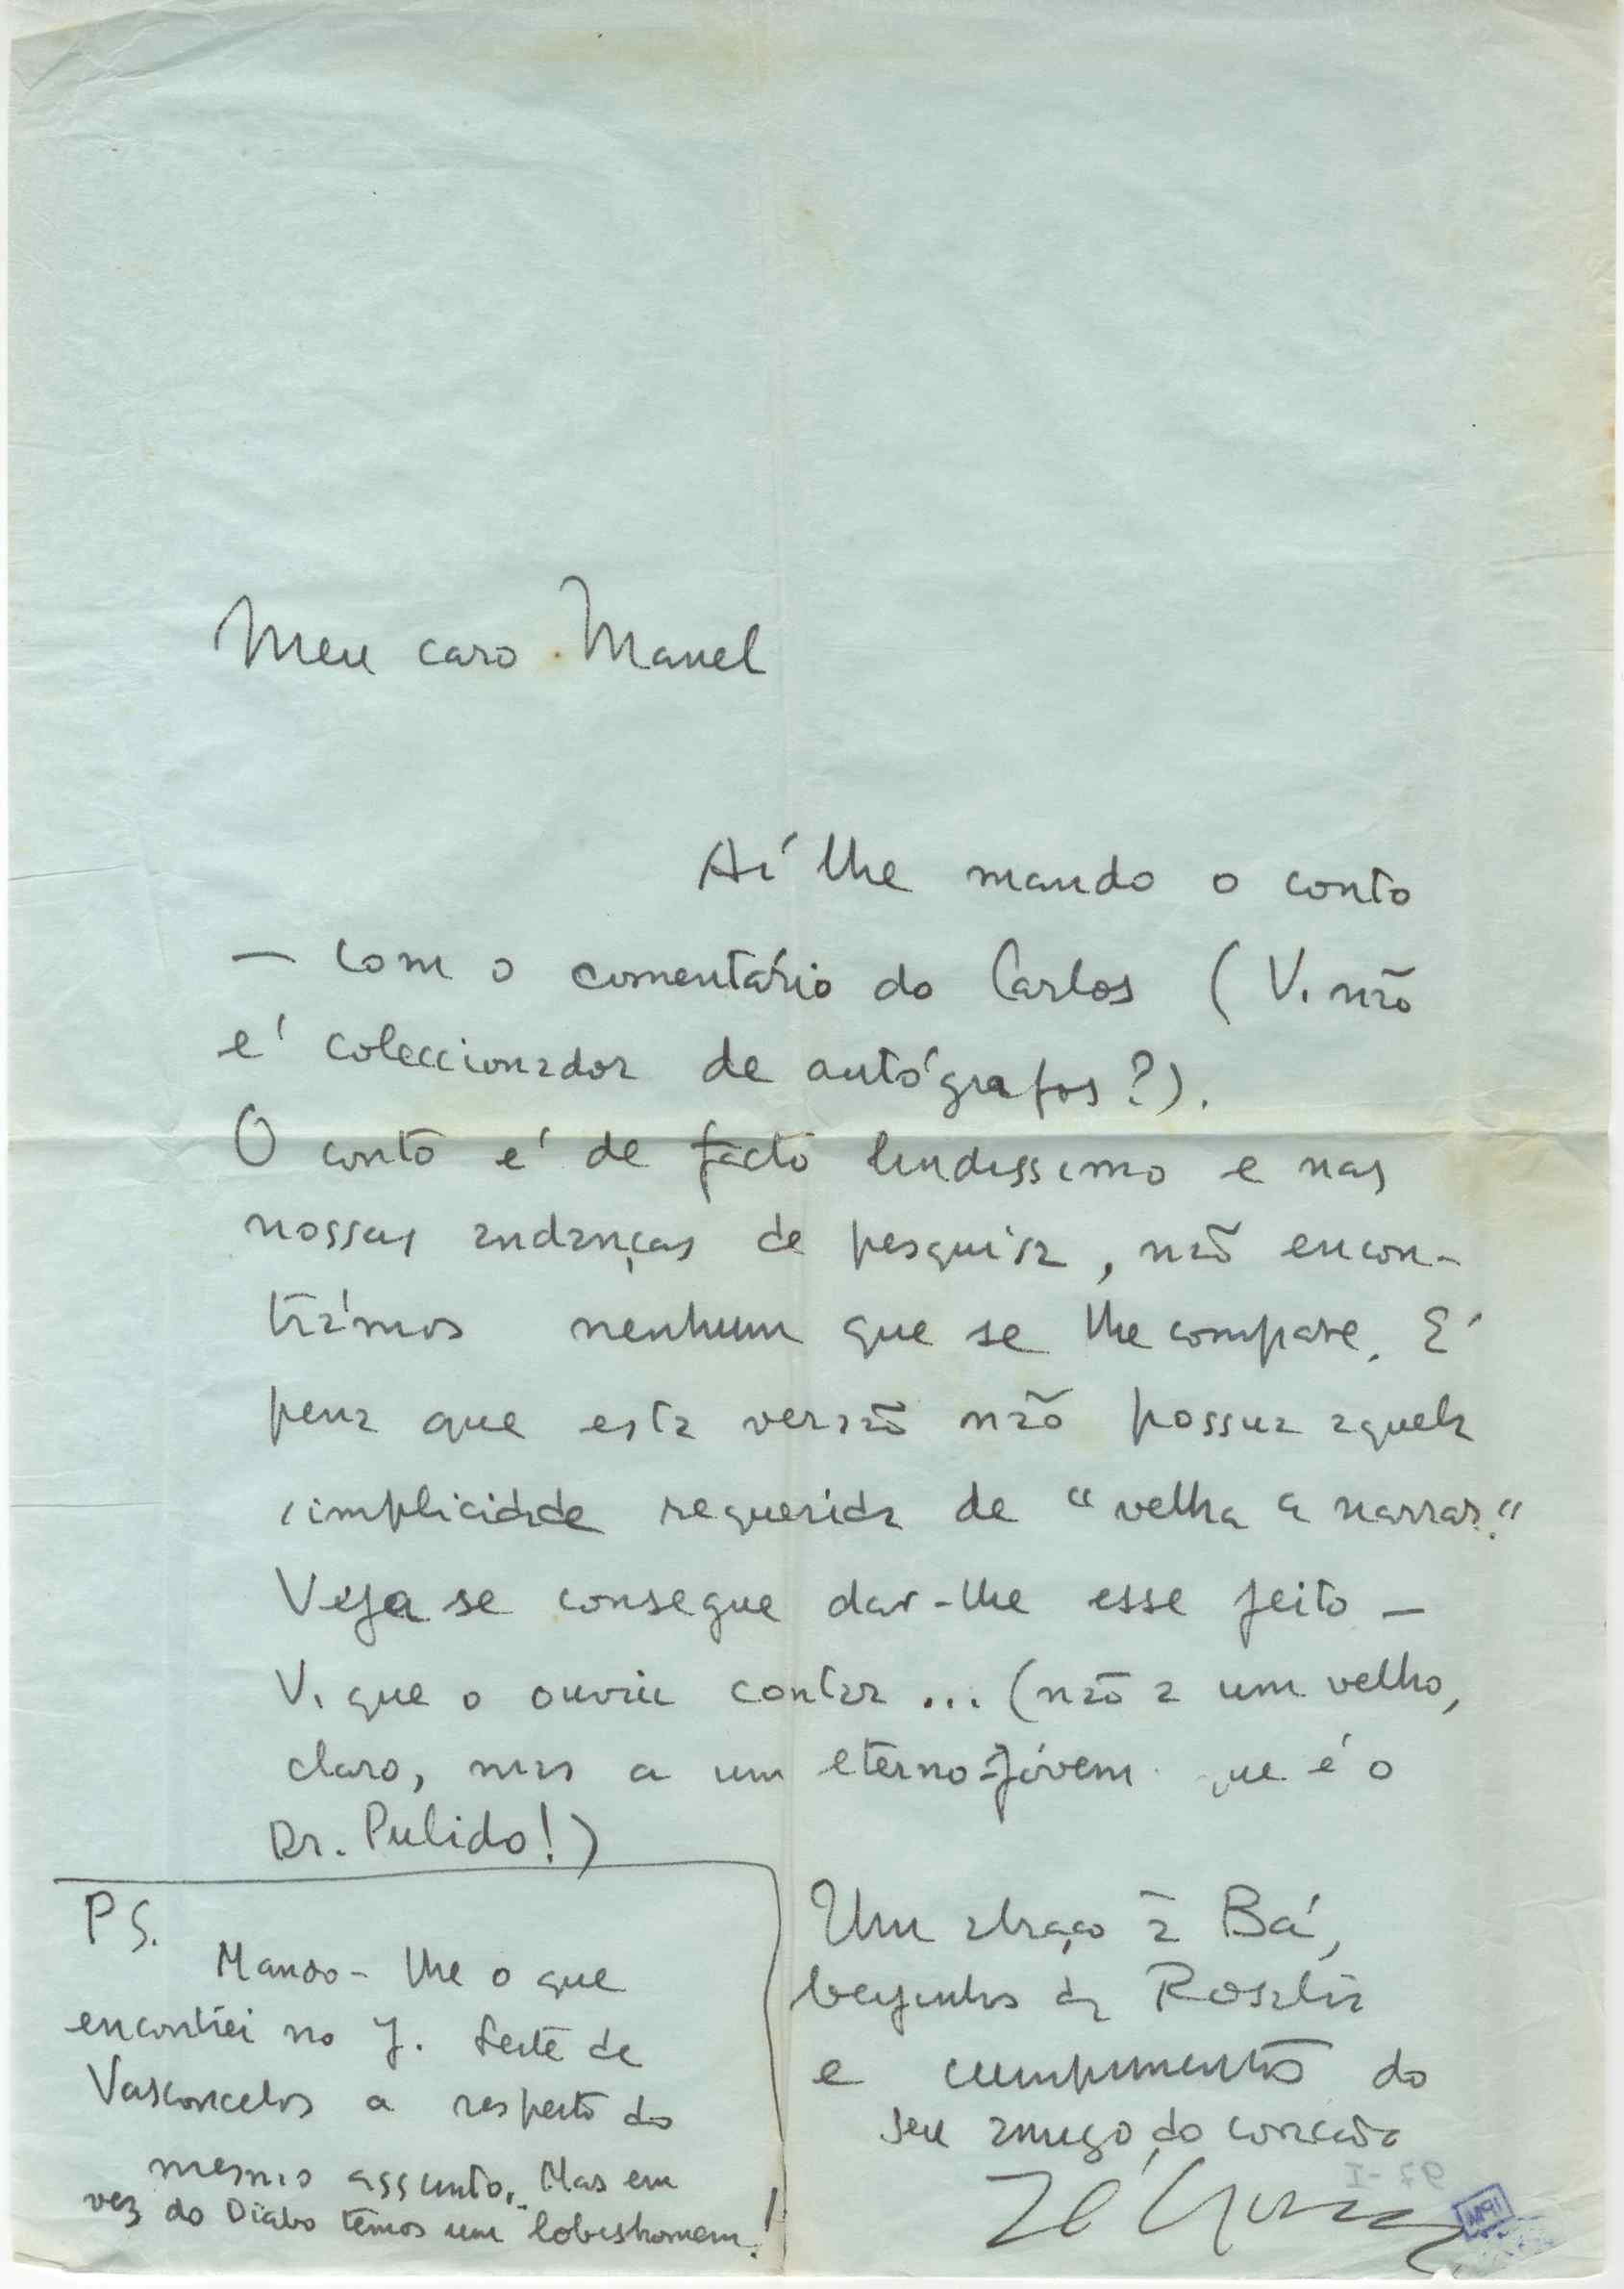 Meu caro Manel
Aí lhe mando o conto
— com o comentário do Carlos (V. não
é coleccionador de autógrafos?).
O conto é de facto lindissimo e nas
nossas andanças de pesquisa, não encon-
trámos nenhum que se lhe compare. É
pena que esta versão não possua aquela
simplicidade requerida de "velha a narrar."
Veja se consegue dar-lhe esse jeito —
V. que o ouviu contar... (não a um velho,
claro, mas a um eterno-jóvem que é o
Dr. Pulido!)
Um abraço à Bá,
beijinhos da Rosalia
e cumprimentos do
seu amigo do coração
Zé
PS.
Mando-lhe o que
encontrei no J. Leite de
Vasconcelos a respeito do
mesmo assunto. Mas em
vez do Diabo têmos um lobishomem!
97-I